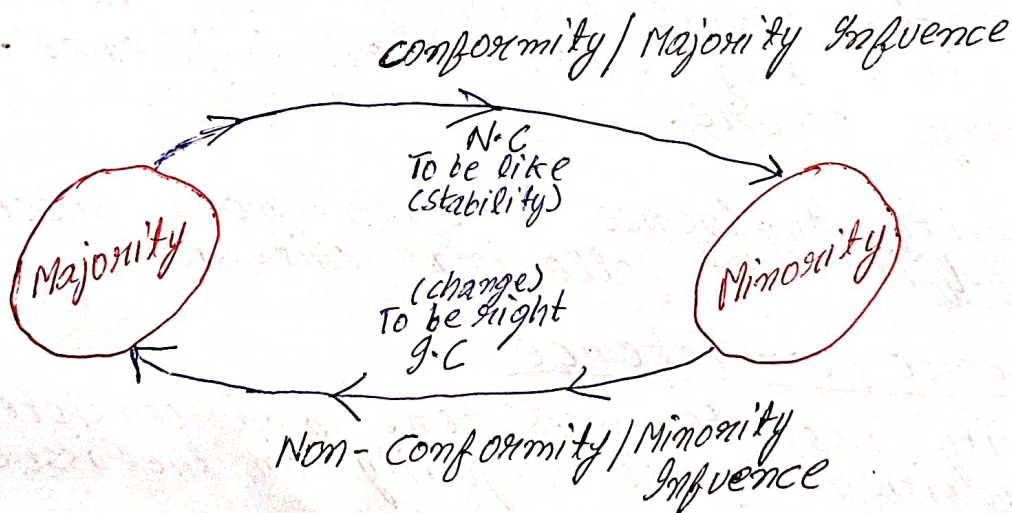 Conformity / Majority Infuence
N.C
To be like
(stability)
Majority
Minority
(change)
To be right
I.C
Non-Conformity/Minority
Infuence